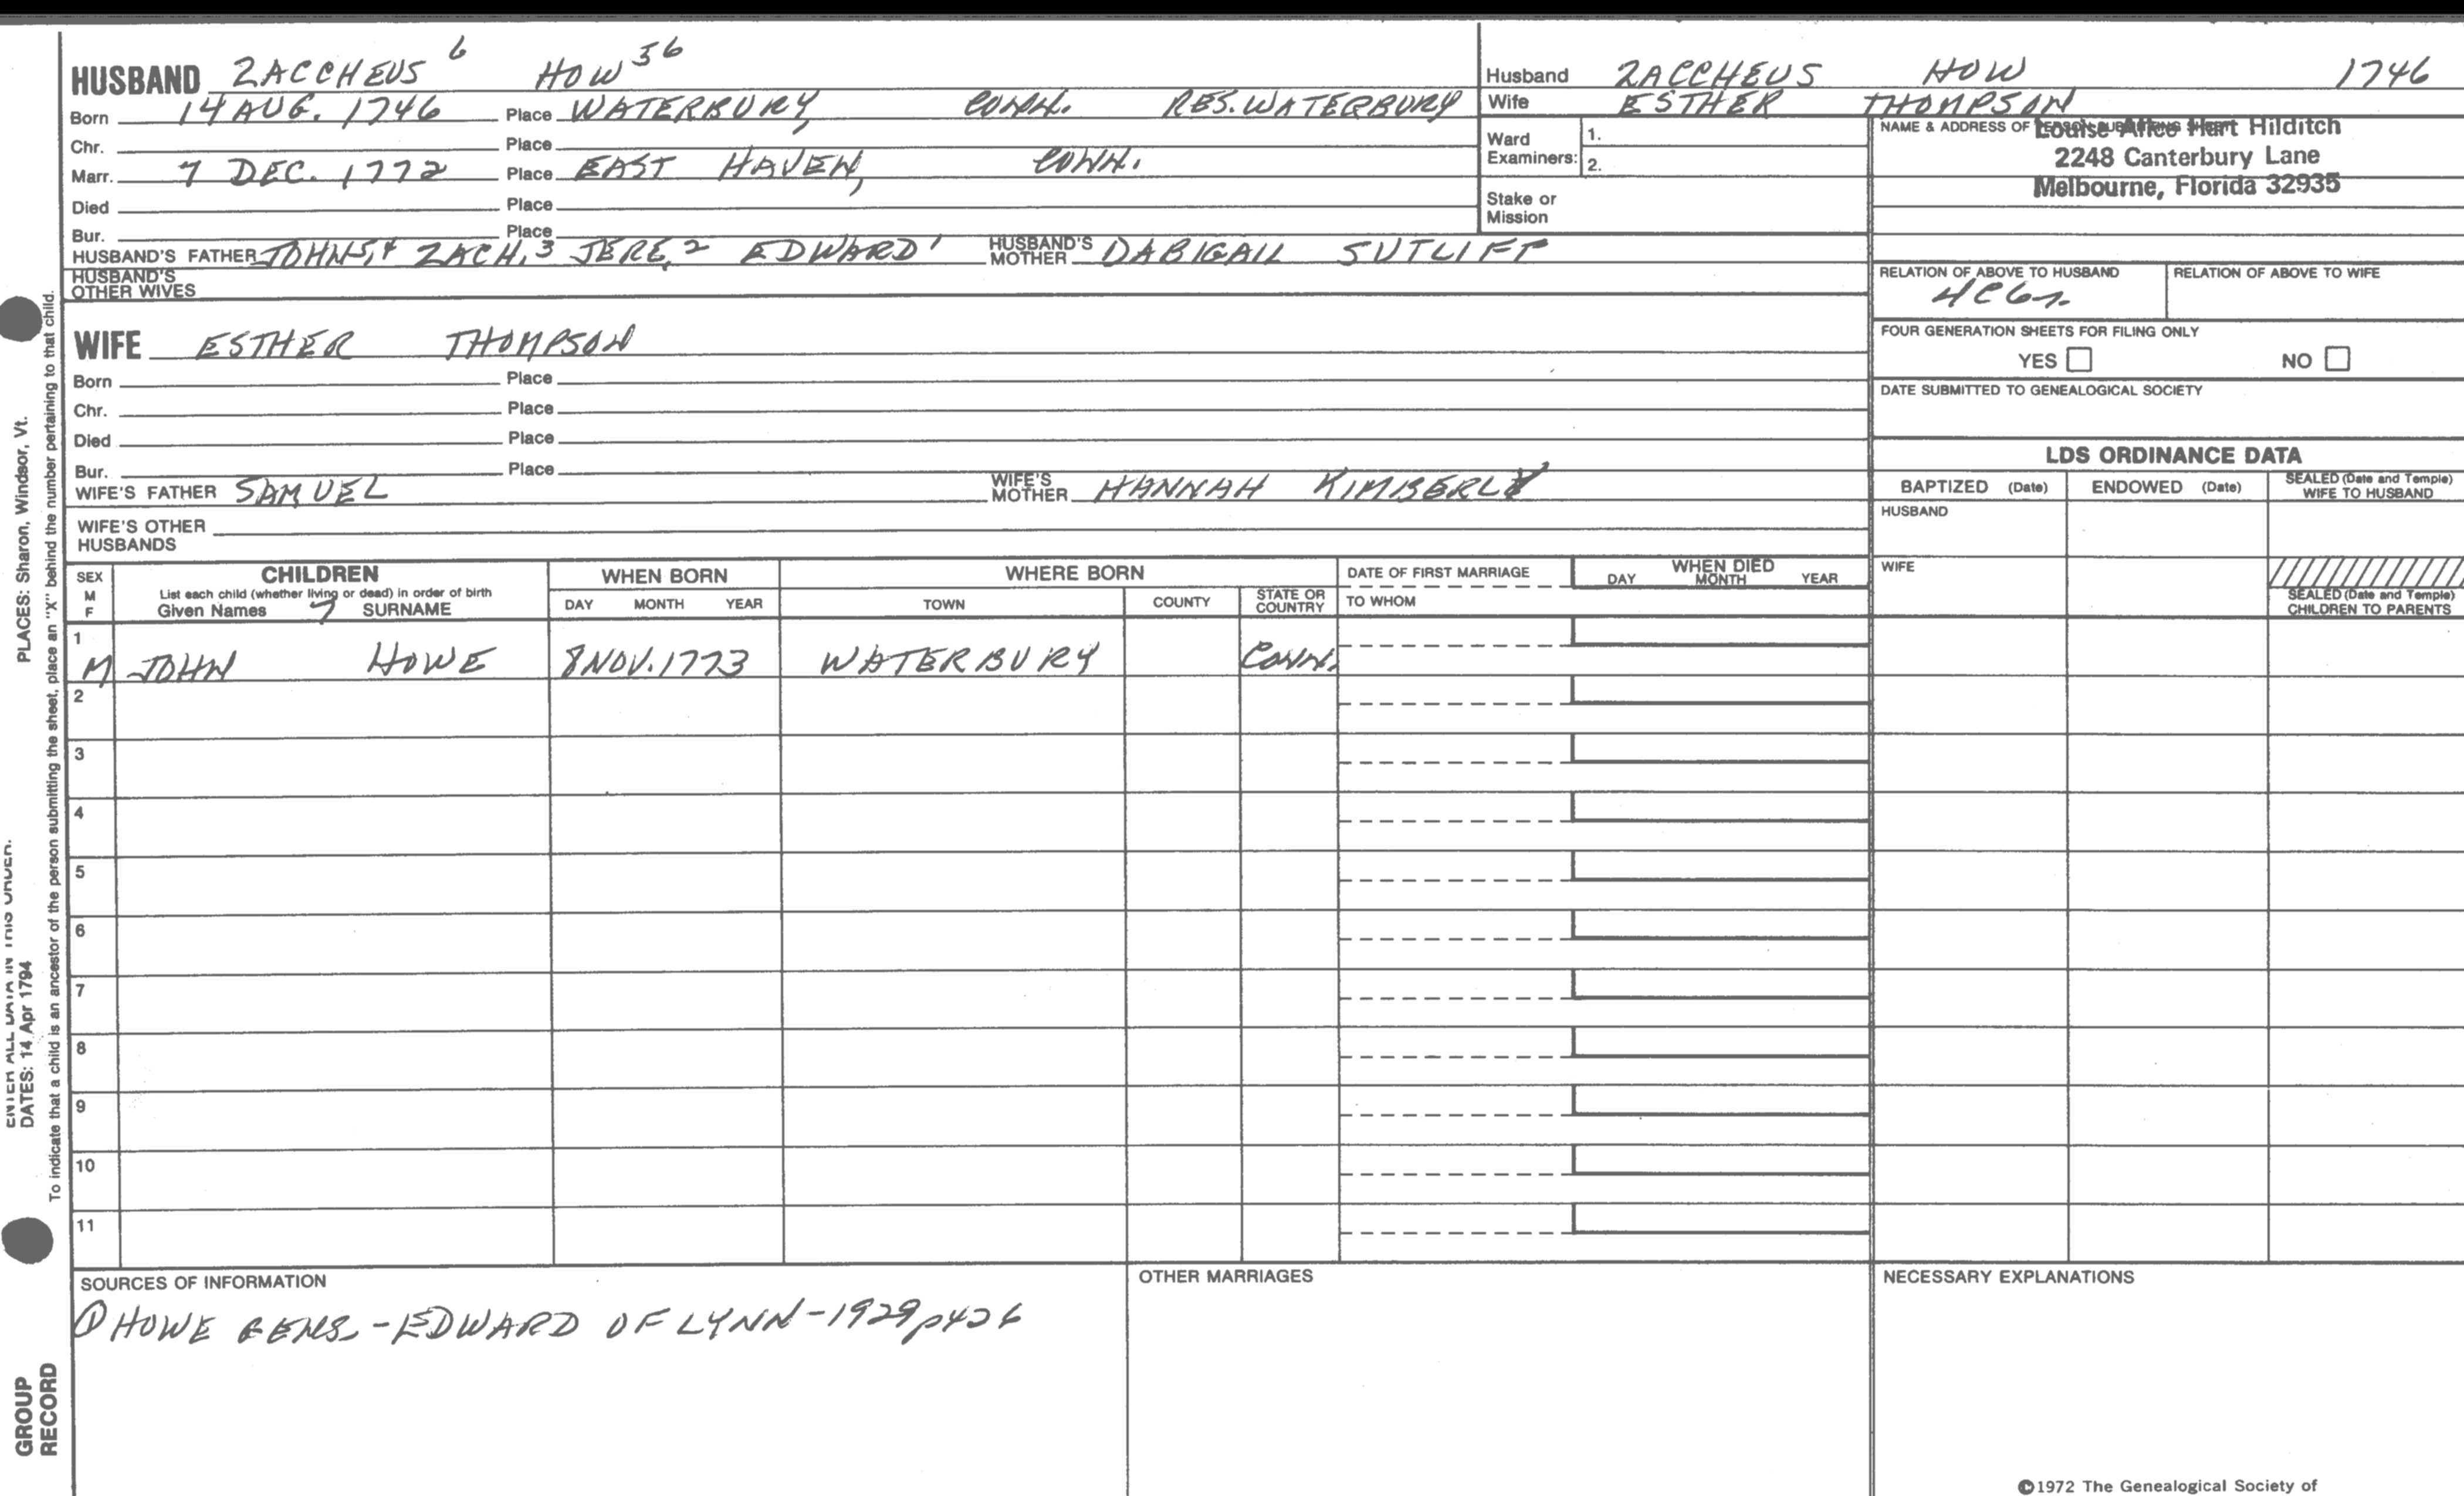 HUSBAND ZACCHEUS 6 HOW 56
Born 14 AUG. 1746 Place WATERBURY, CONN. RES. WATERBURY
Chr. Place
Marr. 7 DEC. 1772 Place EAST HAVEN, CONN.
Died Place
Bur. Place
HUSBAND'S FATHER JOHN 5, 4 ZACH, 3 JERE, 2 EDWARD 1 HUSBAND'S MOTHER DABIGAIL SUTLIFF
HUSBAND'S OTHER WIVES
Husband ZACCHEUS HOW 1746
Wife ESTHER THOMPSON
Ward Examiners: 1.
2.
Stake or Mission
NAME & ADDRESS OF
Louise Alice Hart Hilditch
2248 Canterbury Lane
Melbourne, Florida 32935
RELATION OF ABOVE TO HUSBAND RELATION OF ABOVE TO WIFE
4C6
FOUR GENERATION SHEETS FOR FILING ONLY
YES NO
DATE SUBMITTED TO GENEALOGICAL SOCIETY
WIFE ESTHER THOMPSON
Born Place
Chr. Place
Died Place
Bur. Place
WIFE'S FATHER SAMUEL WIFE'S MOTHER HANNAH KIMBERLY
WIFE'S OTHER HUSBANDS
LDS ORDINANCE DATA
BAPTIZED (Date) ENDOWED (Date) SEALED (Date and Temple) WIFE TO HUSBAND
HUSBAND
WIFE
SEALED (Date and Temple) CHILDREN TO PARENTS
SEX M F
CHILDREN
List each child (whether living or dead) in order of birth
Given Names 7 SURNAME
WHEN BORN
DAY MONTH YEAR
WHERE BORN
TOWN COUNTY STATE OR COUNTRY
DATE OF FIRST MARRIAGE
TO WHOM
WHEN DIED
DAY MONTH YEAR
1
M JOHN HOWE 8 NOV. 1773 WATERBURY CONN.
2
3
4
5
6
7
8
9
10
11
SOURCES OF INFORMATION
① HOWE GENS. - EDWARD OF LYNN - 1929 p426
OTHER MARRIAGES
NECESSARY EXPLANATIONS
©1972 The Genealogical Society of
PLACES: Sharon, Windsor, Vt.
To indicate that a child is an ancestor of the person submitting the sheet, place an "X" behind the number pertaining to that child.
ENTER ALL DATA IN THIS ORDER:
DATES: 14 Apr 1794
GROUP
RECORD